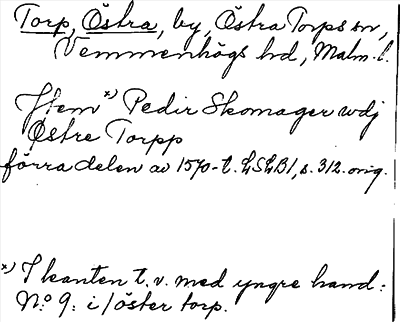 Torp, Östra, by, Östra Torps sn,
Vemmenhögs hd, Malm. l.
Jtem *) Pedir Skomager wdj
Østre Torpp
förra delen av 1570-t. LSLB1, s. 312. orig.
*) I kanten t. v. med yngre hand:
N:o 9: i / öster torp.